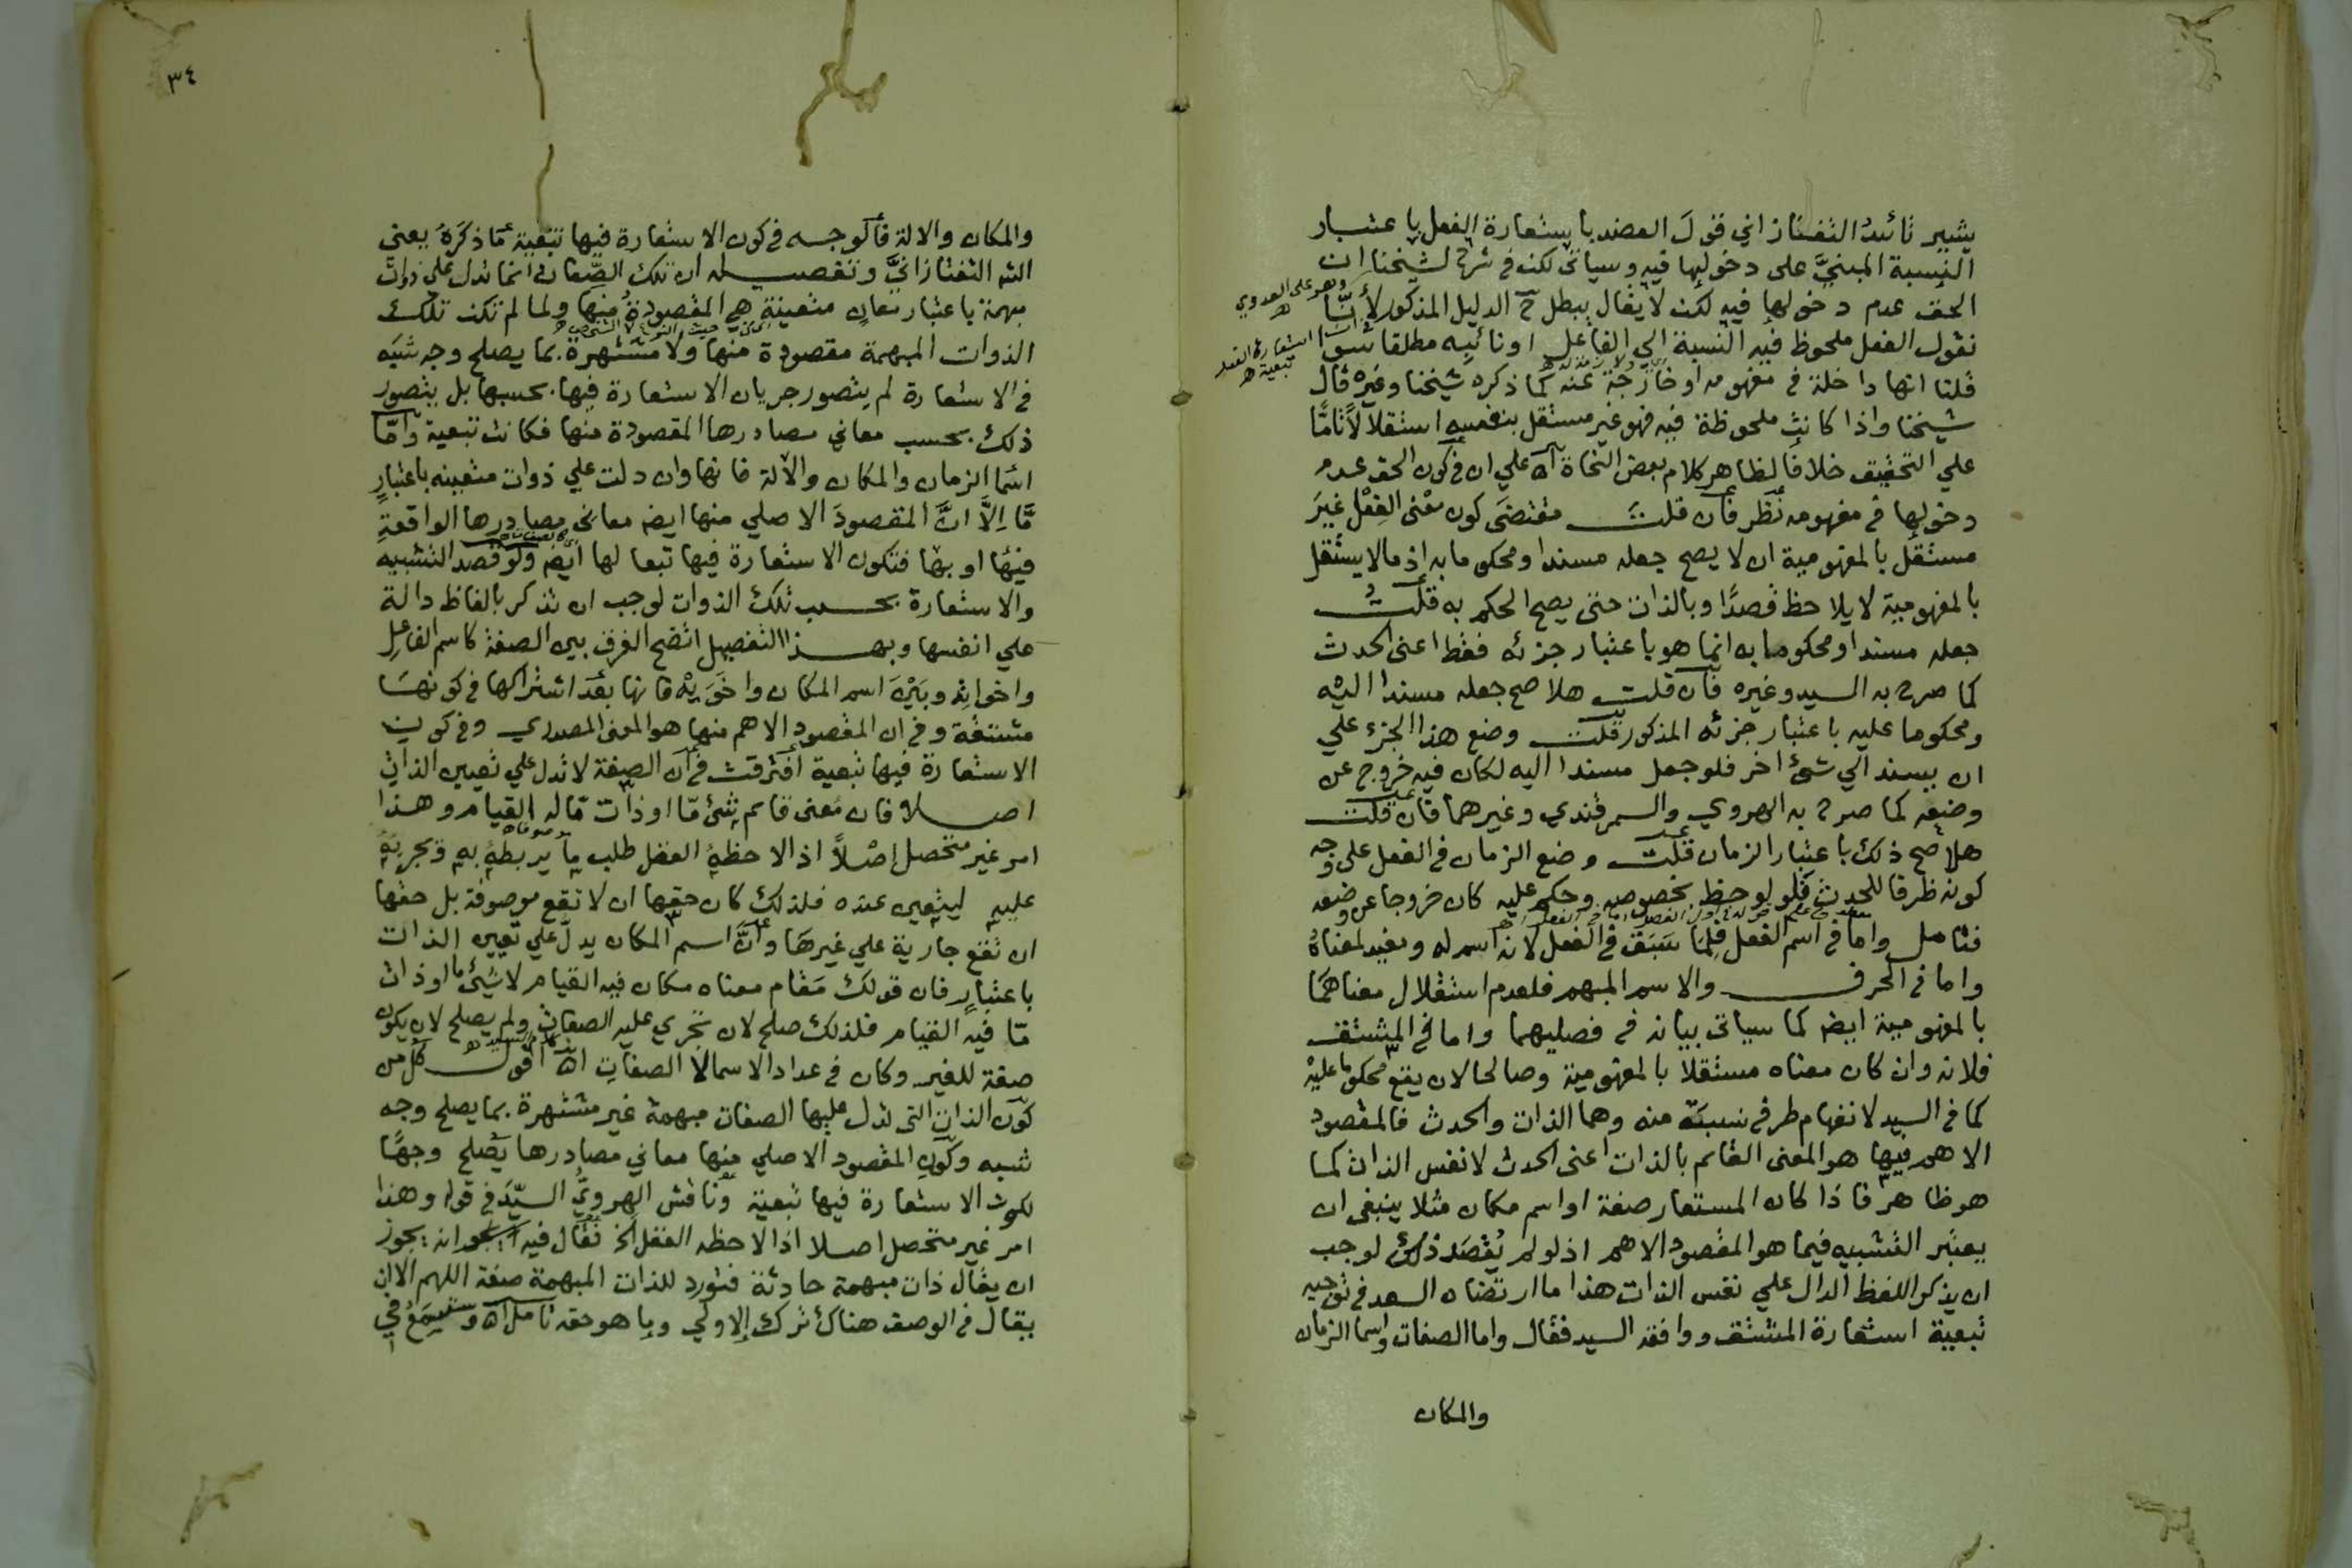 يشير تأييد التفتازاني قول العضد باستعارة الفعل باعتبار
النسبة المبني على دخولها فيه وسياتي لكن في شرح لشيخنا ان
الحق عدم دخولها فيه لكن لا يقال يبطل ح الدليل المذكور لأنا
وهو على العدوي اه
نقول الفعل ملحوظ فيه النسبة الي الفاعل او نائبه مطلقا سوا
استعارة الفعل تبعية اه
قلنا انها داخلة في مفهومه او خارجة عنه كما ذكره شيخنا وغيره قال
شيخنا واذا كانت ملحوظة فيه فهو غير مستقل بنفسه استقلالاً تامًّا
علي التحقيق خلافا لظاهر كلام بعض النحاة اه علي ان في كون الحق عدم
دخولها في مفهومه نظر فان قلت مقتضى كون معنى الفعل غير
مستقل بالمفهومية ان لا يصح جعله مسندا ومحكوما به اذ مالا يستقل
بالمفهومية لا يلاحظ قصدًا وبالذات حتى يصح الحكم به قلت
جعله مسندا ومحكوما به انما هو باعتبار جزئه فقط اعني الحدث
كما صرح به السيد وغيره فان قلت هلا صح جعله مسندا اليه
ومحكوما عليه باعتبار جزئه المذكور قلت وضع هذا الجزء علي
ان يسند الي شئ اخر فلو جعل مسندا اليه لكان فيه خروج عن
وضعه كما صرح به الهروي والسمرقندي وغيرهما فان قلت
هلا صح ذلك باعتبار الزمان قلت وضع الزمان في الفعل على وجه
كونه ظرفا للحدث فلو لوحظ بخصوصه وحكم عليه كان خروجا عن وضعه
فتامل واما في اسم الفعل فلما سبق في الفعل لانه اسم له ومفيد لمعناه
واما في الحرف والاسم المبهم فلعدم استقلال معناهما
بالمفهومية ايضا كما سياتي بيانه في فصليهما واما في المشتق
فلانه وان كان معناه مستقلا بالمفهومية وصالحا لان يقع محكوما عليه
كما في السيد لانفهام طرفي نسبته منه وهما الذات والحدث فالمقصود
الاهم فيها هو المعنى القائم بالذات اعني الحدث لا نفس الذات كما
هو ظاهر فاذا كان المستعار صفة او اسم مكان مثلا ينبغي ان
يعتبر التشبيه فيما هو المقصود الاهم اذ لو لم يقصد ذلك لوجب
ان يذكر اللفظ الدال علي نفس الذات هذا ما ارتضاه السعد في توجيه
تبعية استعارة المشتق ووافقه السيد فقال واما الصفات واسما الزمان
والمكان
٣٤
والمكان والالة فالوجه في كون الاستعارة فيها تبعية ما ذكره يعني
التفتازاني وتفصيله ان تلك الصفات انما تدل علي ذوات
مبهمة باعتبار معان متعينة هي المقصودة منها ولما لم تكن تلك
الذوات المبهمة مقصودة منها ولا مشتهرة بما يصلح وجه شبه
في الاستعارة لم يتصور جريان الاستعارة فيها بحسبها بل يتصور
ذلك بحسب معاني مصادرها المقصودة منها فكانت تبعية واما
اسما الزمان والمكان والالة فانها وان دلت علي ذوات متعينه باعتبار
ما إلا ان المقصود الاصلي منها ايضا معاني مصادرها الواقعة
فيها او بها فتكون الاستعارة فيها تبعا لها ايضا ولو قصد التشبيه
والاستعارة بحسب تلك الذوات لوجب ان تذكر بالفاظ دالة
علي انفسها وبهذا التفصيل اتضح الفرق بين الصفة كاسم الفاعل
واخواته وبين اسم المكان واخويه فانها بعد اشتراكها في كونها
مشتقة وفي ان المقصود الاهم منها هو المعنى المصدري وفي كون
الاستعارة فيها تبعية افترقت في ان الصفة لا تدل علي تعيين الذات
اصلا فان معنى قائم شئ ما او ذات ما له القيام وهذا
امر غير متحصل اصلاً اذا لاحظه العقل طلب ما يربطه به ويجريه
عليه ليتعين عنده فلذلك كان حقها ان لا تقع موصوفة بل حقها
ان تقع جارية علي غيرها وان اسم المكان يدل علي تعيين الذات
باعتبار فان قولك مقام معناه مكان فيه القيام لا شئ ما او ذات
ما فيه القيام فلذلك صلح لان تجري عليه الصفات ولم يصلح لان يكون
صفة للغير وكان في عداد الاسما لا الصفات اه اقول كل من
كون الذات التي تدل عليها الصفات مبهمة غير مشتهرة بما يصلح وجه
شبه وكون المقصود الاصلي منها معاني مصادرها يصلح وجها
لكون الاستعارة فيها تبعية وناقش الهروي السيد في قوله وهذا
امر غير متحصل اصلا اذا لاحظه العقل الخ فقال فيه انه يجوز
ان يقال ذات مبهمة حادثة فتورد للذات المبهمة صفة اللهم الا ان
يقال في الوصف هناك ترك الاولي وما هو حقه تامل اه وستسمع في